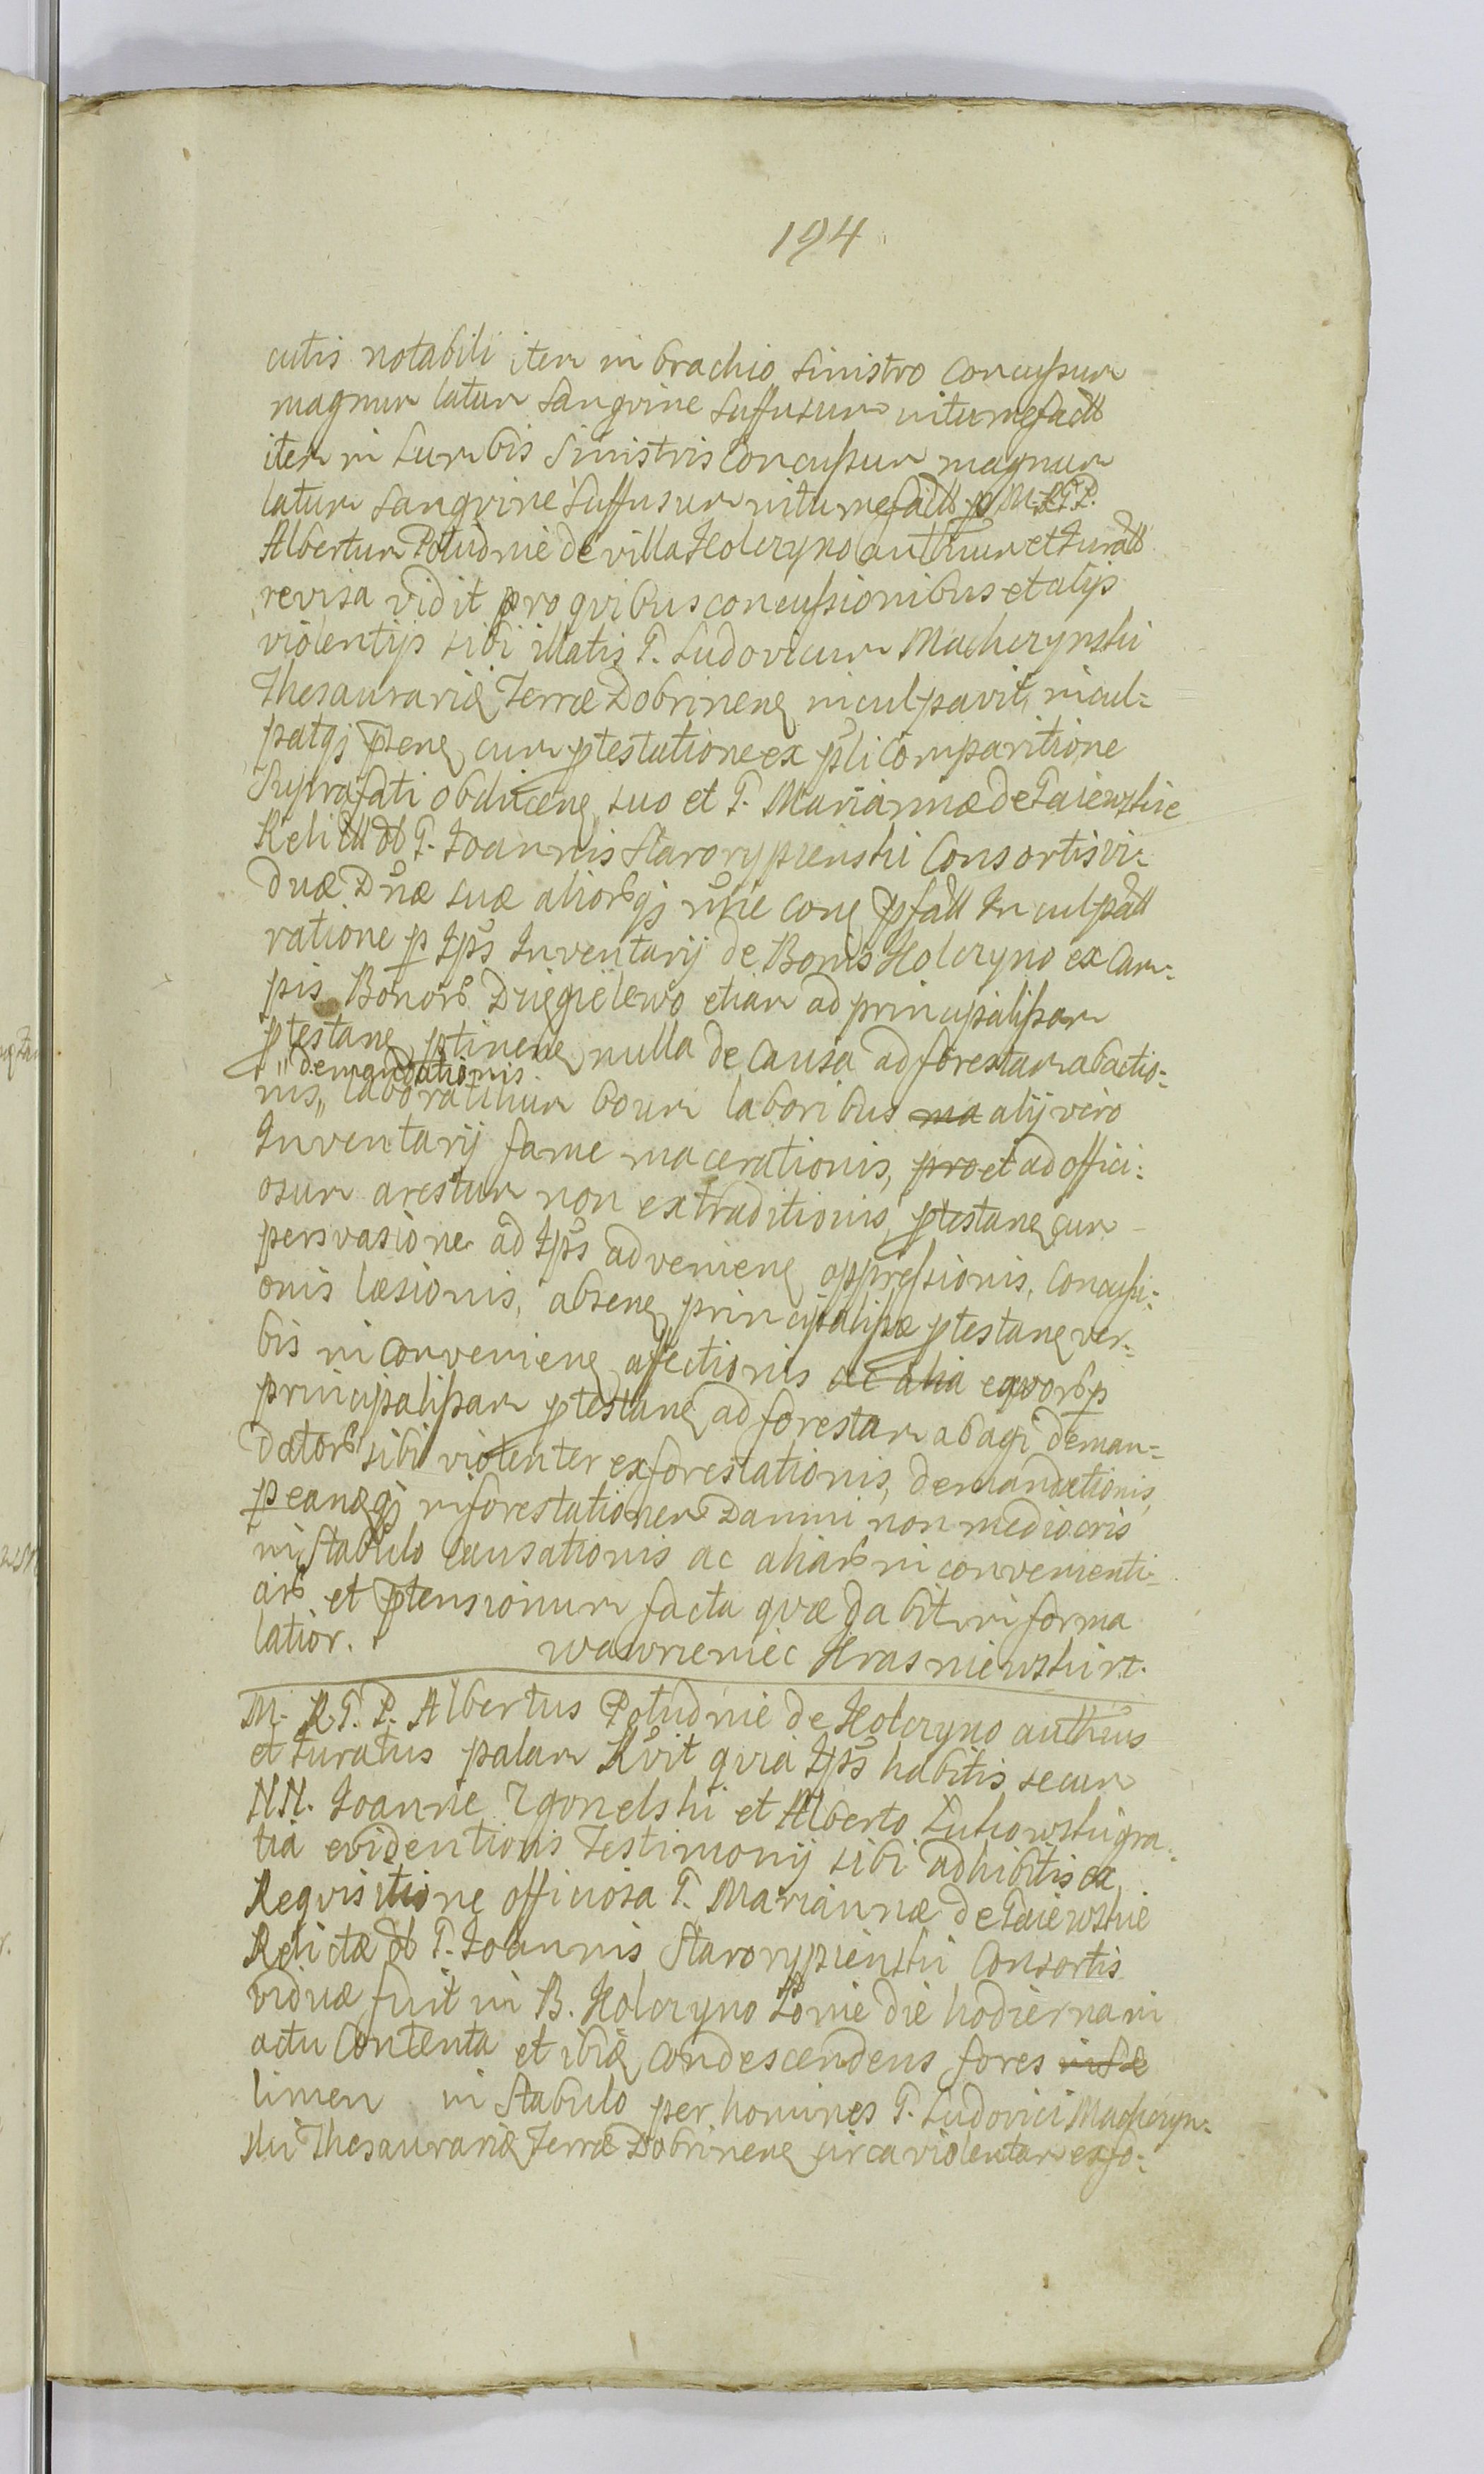 194
cutis notabili item in brachio sinistro concussum
magnum latum sangvine suffusum intumefactt
item in lumbis sinistris concussum magnum
latum sangvine suffusum intumefactt p M. R. G. P.
Albertum Południe de villa Holczyno authcum et Juratt
revisa vidit pro qvibus concussionibus et alijs
violentijs sibi illatis G. Ludovicum Machczynski
Thesaurariũ Terræ Dobrinenẽ inculpavit, incul-
patqȝ psenẽ cum ptestatione ex psli comparitione
Suprafati obducenẽ suo et G. Mariannæ de Gaiewskie
Relictt ol G. Joannis Starorypienski Consortis vi-
duæ Dnæ suæ aliorqȝ nñe conẽ pfatt Inculpatt
ratione p Ips Inventarij de Bonis Holczyno ex Cam-
pis Bonor Dzięgielewo etiam ad principalissam
ptestanẽ ptinenẽ nulla de causa ad forestam abactio-
„demandationis
nis„ laboratinum boum laboribus ma alij vero
Inventarij fame macerationis, pro et ad offici-
osum arestum non extraditionis, ptestanẽ cum
persvasione ad Ips advenienẽ oppressionis, concussi-
onis læsionis, absenẽ principalissæ ptestanẽ ver-
bis inconvenienẽ affectionis ac alia eqvor p
principalissam ptestanẽ ad forestam abagi deman-
dator sibi violenter exforestationis, demandationis,
peanẽqȝ inforestationem Damni non mediocris
in stabulo causationis ac aliar inconvenienti-
ar et ptensionum facta qvæ dabit in forma
latior.
Wawrzeniec Krasniewski rt.
M. R. G. P. Albertus Południe de Holczyno authcus
et Juratus palam Rvit qvia Ips habitis secum
NN. Joanne Zgonelski et Alberto Lukowski gra-
tia evidentioris Testimonij sibi adhibitis ex
Reqvisitione officiosa G. Mariannæ de Gaiewskie
Relictæ ol G. Joannis Starorypienski Consortis
viduæ fuit in B. Holczyno Zonie die hodierna in
actu contenta et ibiẽ condescendens fores
limen in stabulo per homines G. Ludovici Machczyn-
ski Thesaurariũ Terræ Dobrinenẽ circa violentam exfo-